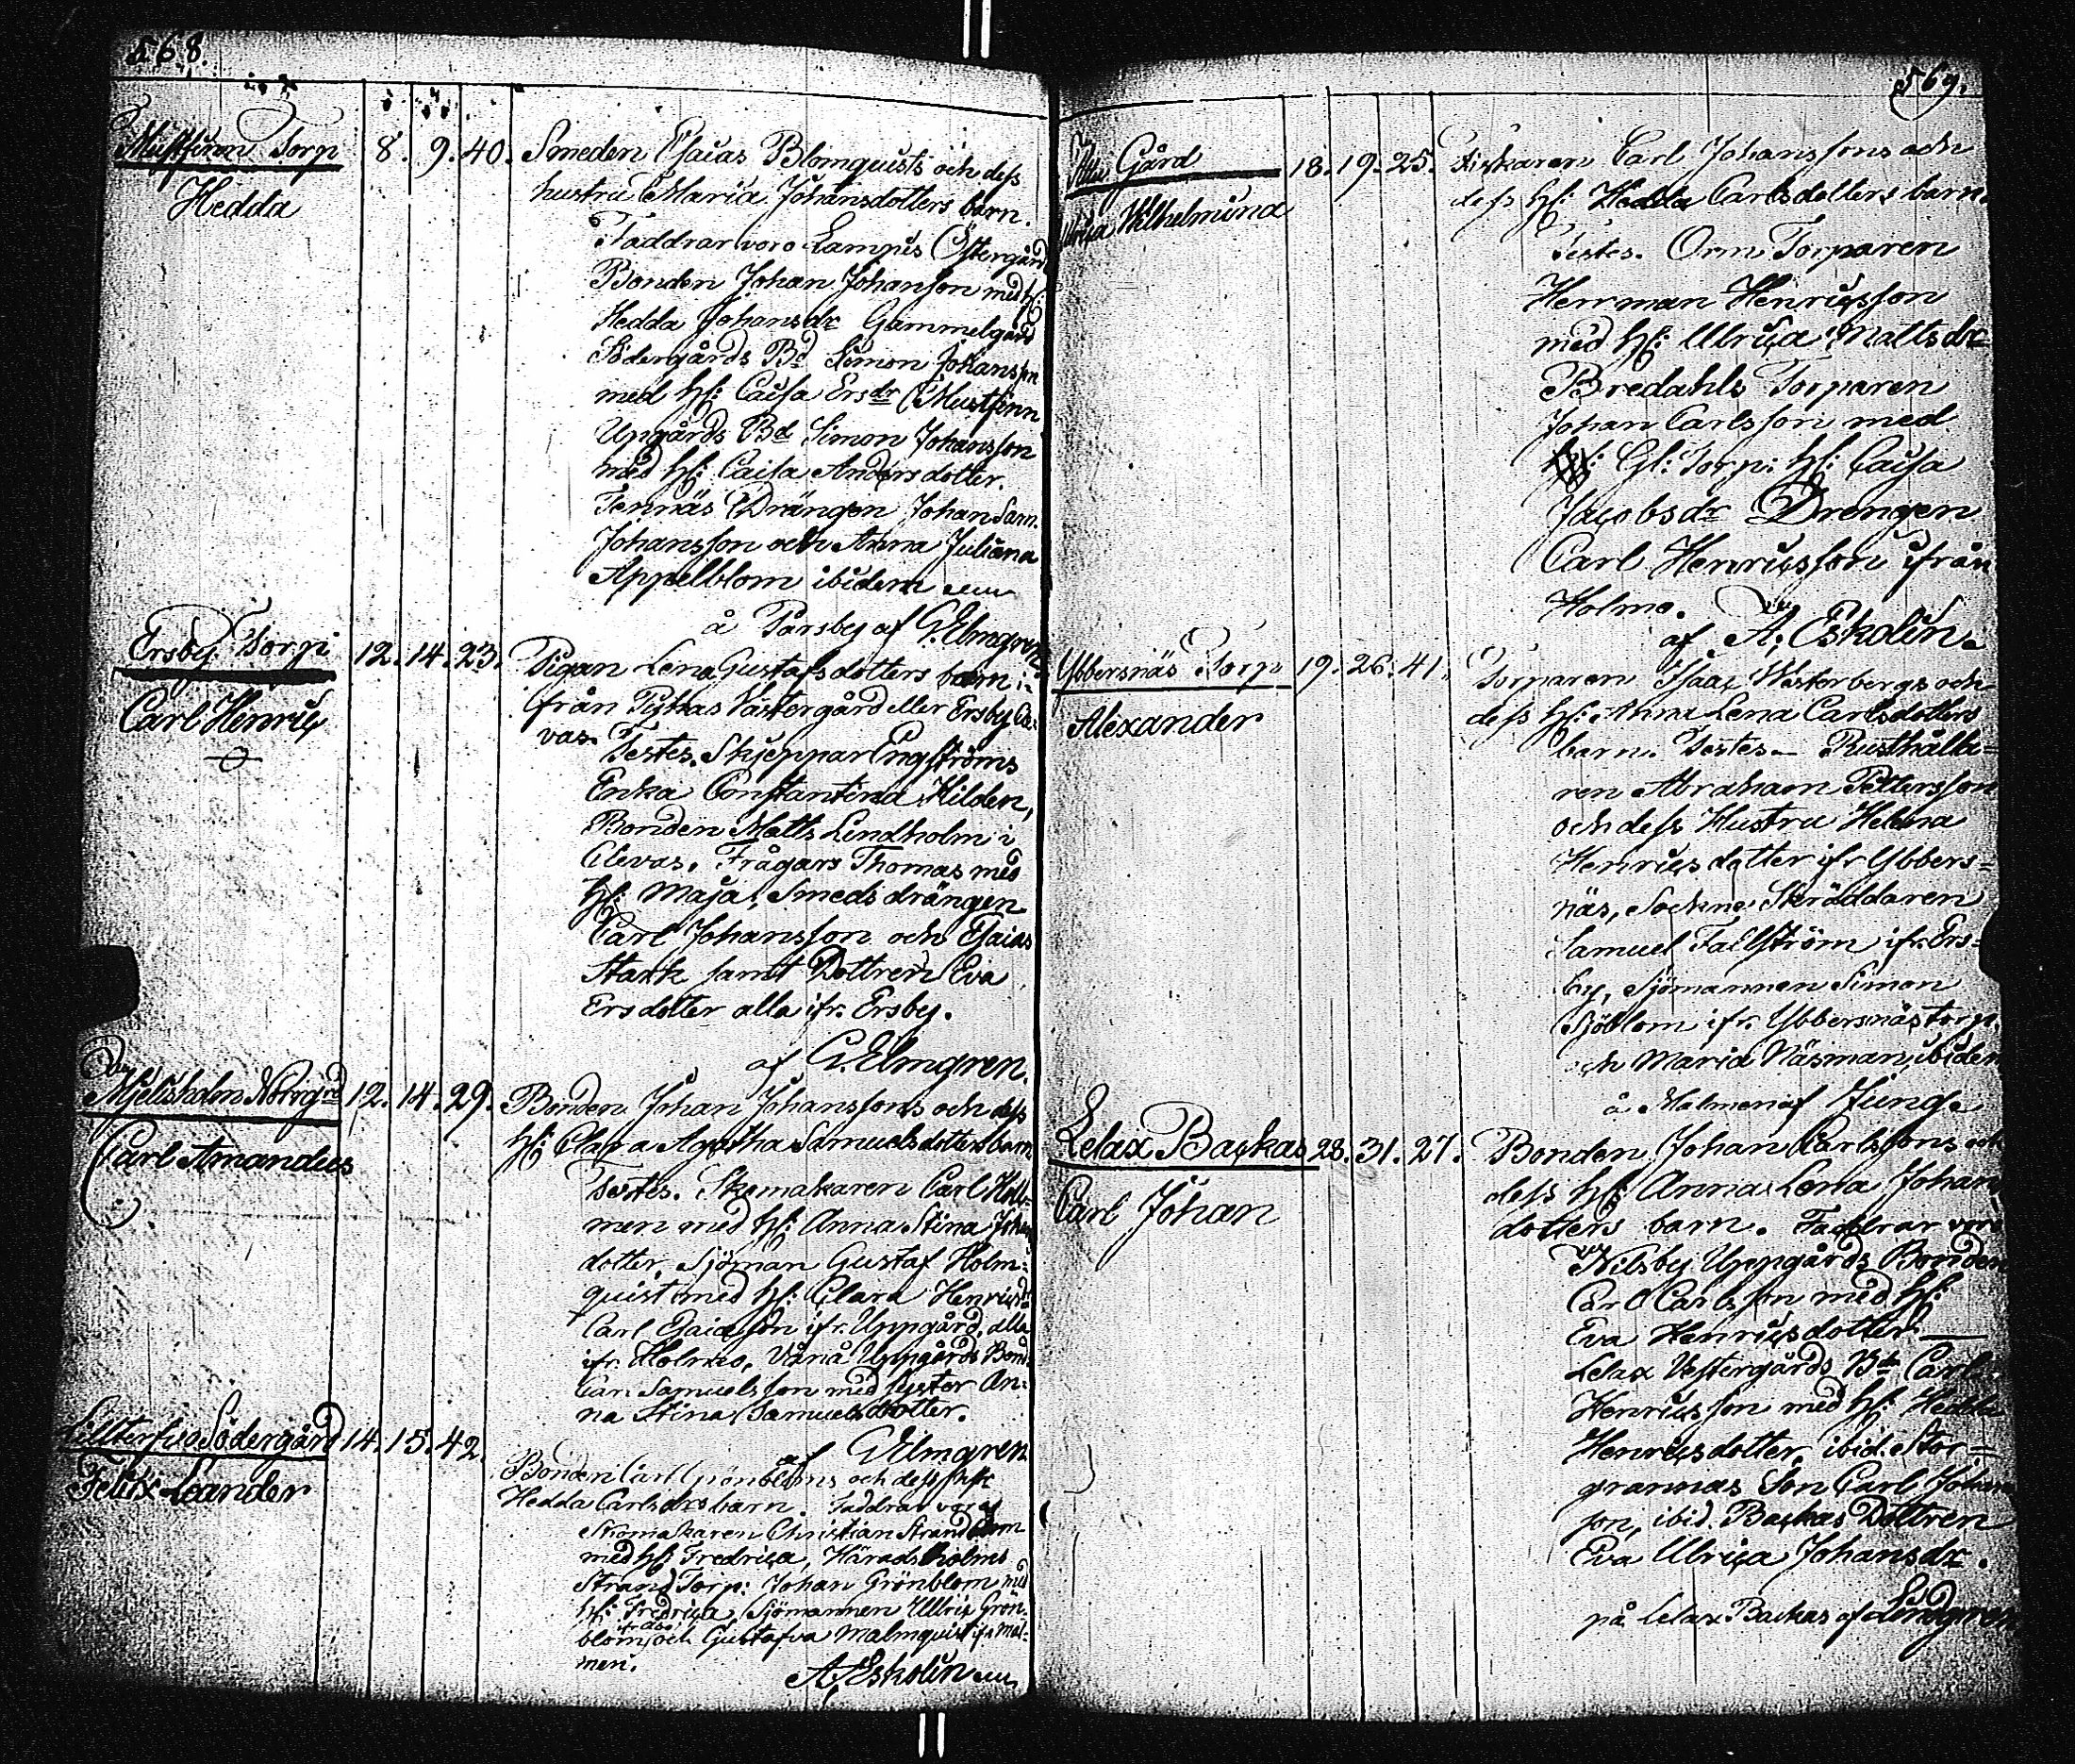 568.
Mustfinn Torp 8. 9. 40. Smeden Esaias Blomquists och dess
Hedda hustru Maria Johansdotters barn.
Faddrar voro Lampis Östergård
Bonden Johan Johansson med h:
Hedda Johansdr Gammelgård
Södergårds Bd Simon Johansson
med hf: Caisa Ersdr Mustfinn
Upgårds Bd Simon Johansson
med hf: Caisa Andersdotter.
Tennäs Drängen Johan Sam.
Johansson och Anna Juliana
Appelblom ibidem
å Parsby af G. Elmgren
Ersby Torp 12. 14. 23. Pigan Lena Gustafsdotters barn i:
Carl Henric från Pyhas Västergård eller Ersby Cle:
vas. Testes. Skjeppar Engströms
Enka Constantina Hilden,
Bonden Matts Lindholm i
Clevas. Frågars Thomas med
hf: Maja, Smedsdrängen
Carl Johansson och Esaias
Stark samt Dottren Eva
Ersdotter alla ifr. Ersby.
af G. Elmgren.
Mjelisholm Norrgrd 12. 14. 29. Bonden Johan Johanssons och dess
Carl Amandus hf: Clara Agatha Samuelsdotters barn
Testes. Skomakaren Carl Holl-
men med hf: Anna Stina Johans
dotter, Sjöman Gustaf Holm:
quist med hf: Clara Henricsd:
Carl Esaiasson ifr. Uppgård, alla
ifr. Holmo, Vånå Uppgårds Bond:
Carl Samuelsson med syster An:
na Stina Samuelsdotter.
af G Elmgren
Södergård 14. 15. 42. Bonden Carl Grönbloms och dess hust
Felix Leander Hedda Carlsdrs barn. Faddrar voro
Skomakaren Christian Strandblom
med hf: Fredrica, Häradsholms
Strand Torp: Johan Grönblom med
hf: Fredrica, Sjömannen Ullric Grön:
blom och Gustafva Malmquist ifr Mal-
men.
A. Eskolin
569.
Gård 18. 19. 25. Fiskaren Carl Johanssons och
Wilhelmina dess hf: Hedda Carlsdotters barn.
Testes. Orm Torparen
Herrman Henricsson
med hf: Ulrica Mattsdr
Bredahls Torparen
Johan Carlsson med
Gl: Torp: hf: Caisa
Jacobsdr Drengen
Carl Henricsson ifrån
Holmo.
af A. Eskolin.
Ybbersnäs Torp 19. 26. 41. Torparen Isaac Westerbergs och
Alexander dess hf: Anna Lena Carlsdotters
barn. Testes- Rusthålla=
ren Abraham Pettersson
och dess Hustru Helena
Henricsdotter ifr Ybbers=
näs, Sockne Skräddaren
Samuel Fallström ifr. Ers=
by, Sjömannen Simon
Sjöblom ifr. Ybbersnäs torp.
och Maria Näsman, ibidem
å Malmen af Jung.
Lelax Backas 28. 31. 27. Bonden Johan Carlssons och
Carl Johan dess hf: Anna Lena Johans
dotters barn. Faddrar voro
Nilsby Uppgårds Bonden
Carl Carlsson med hf:
Eva Henricsdotter
Lelax Vestergårds Bd Carl
Henricsson med hf: Hedda
Henricsdotter, ibid. Stor=
grannas Son Carl Johans
son, ibid. Backas Dottren
Eva Ulrica Johansdr.
på Lelax Backas af Lindgren